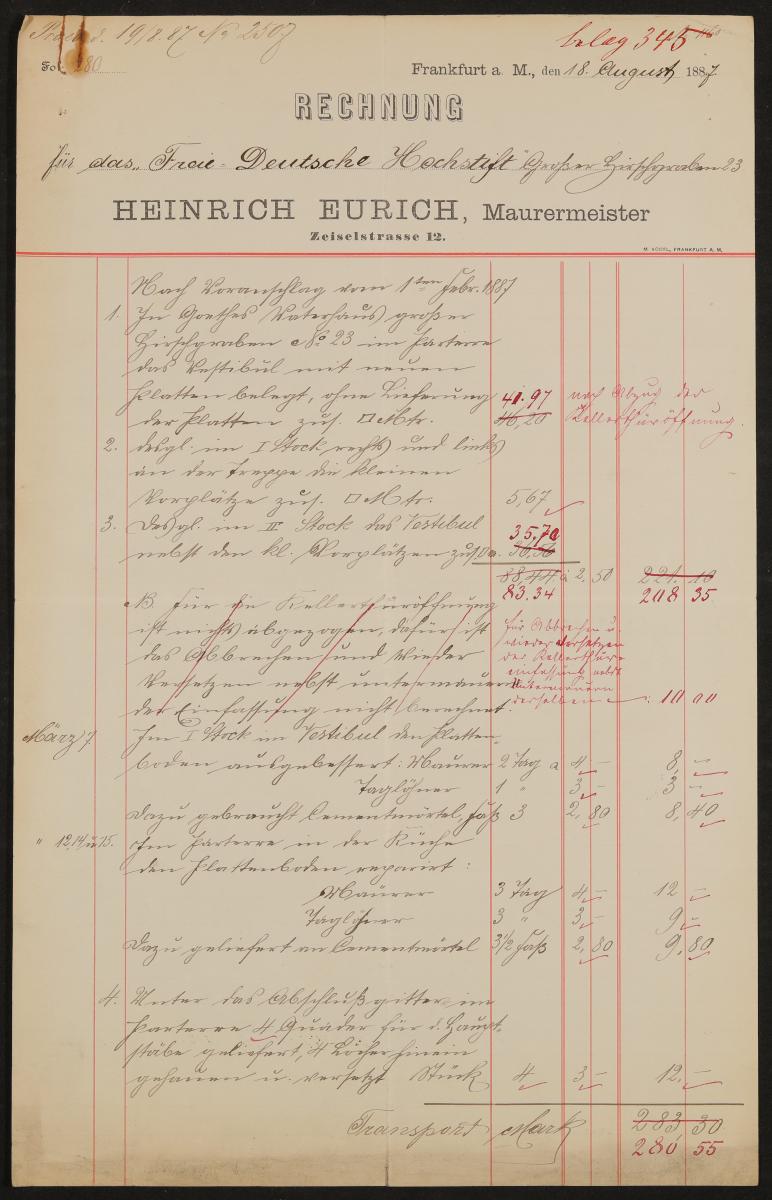 Praes. d. 19/8.87 No 2507
belag 345
Fol. 280
Frankfurt a. M., den 18. August 1887.
RECHNUNG
für das „Freie-Deutsche Hochstift" Großer Hirschgraben 23
HEINRICH EURICH, Maurermeister
Zeiselstrasse 12.
Nach Voranschlag vom 1ten Febr. 1887
1. In Goethes Vaterhaus großer
Hirschgraben No. 23 im Parterre
das Vestibul mit neuen
Platten belegt, ohne Lieferung 41.97 nach Abzug der
der Platten zus. □Mtr. 46,20 Kellerthüröffnung.
2. desgl. im I Stock rechts und links
an der Treppe die kleinen
Vorplätze zus. □Mtr. 5,67
3. Desgl. im II Stock das Vestibul 35,70
nebst den kl. Vorplätzen zus.
88,44 à 2.50 221. 10
83.34 208 35
NB Für die Kellerthüröffnung
ist nichts abgezogen, dafür ist
das Abbrechen und Wieder
Versetzen nebst untermauern
der Einfassung nicht berechnet.
für Abbrechen u.
wieder Versetzen
der Kellerthür-
einfassung nebst
Untermauern
derselben : 10 00
März 7. Im I Stock im Vestibul den Platten-
boden ausgebessert: Maurer 2 Tag a 4 – 8, –
Taglöhner 1 " 3 – 3 –
Dazu gebraucht Cementmörtel, Faß 3 2, 80 8, 40
" 12, 14, u 15. Im Parterre in der Küche
den Plattenboden reparirt:
Maurer 3 Tag 4 – 12 –
Taglöhner 3 " 3 – 9 –
Dazu geliefert an Cementmörtel 3½ Faß 2, 80 9, 80
4. Unter das Abschlußgitter im
Parterre 4 Quader für d. Haupt-
stäbe geliefert, 4 Löcher hinein
gehauen u. versetzt Stück 4 3 – 12, –
Transport Mark 283 30
280 55